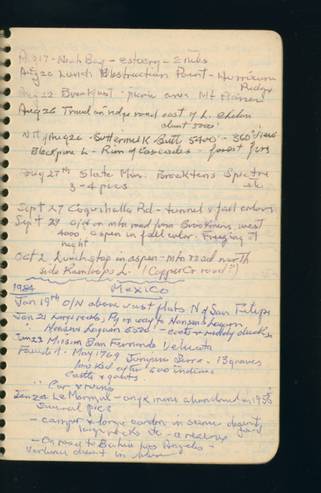 Aug 17 - Neah Bay - estuary - 2 nites
Aug 20 Lunch Obstruction Point - Hurricane Ridge
Aug 22 Breakfast - picnic area Mt
Aug 26 Travel on ridge road east of L. Chelan
about 5000'
Nite Aug 26 - Buttermilk Butte 5400 - 360° view
Blackpine L - Rim of Cascades - forest fires
Aug 27th Slate Mtn. Brockton's Spectre
3-4 pics etc.
Sept 27 Coquihalla Rd - tunnel & fall colours
Sept 29 O/N on mtn road from Brookmere west
4000 aspen in fall color. Freezing at
night
Oct 2 Lunch stop in aspen - mtn road north
side Kamloops L. ("Copper Cr road")
1984 Mexico
Jan 19th O/N above vast flats N of San Felipe
Jan 21 Large rocks, on way to Hansens Lagoon
Hansens Lagoon - coots & ruddy ducks
Jan 23 Mision San Fernando Velicata
Founded - May 1769 Junipero Serra - 13 graves
looked after 600 indians
Cattle & goats
" Car & ruins
Jan 24 Le Marmol - onyx mines abandoned in 1958
Several pics
- camper & large cardon in scenic desert
large rocks etc - a nearby
- On road to Bahia Los Angeles -
desert in